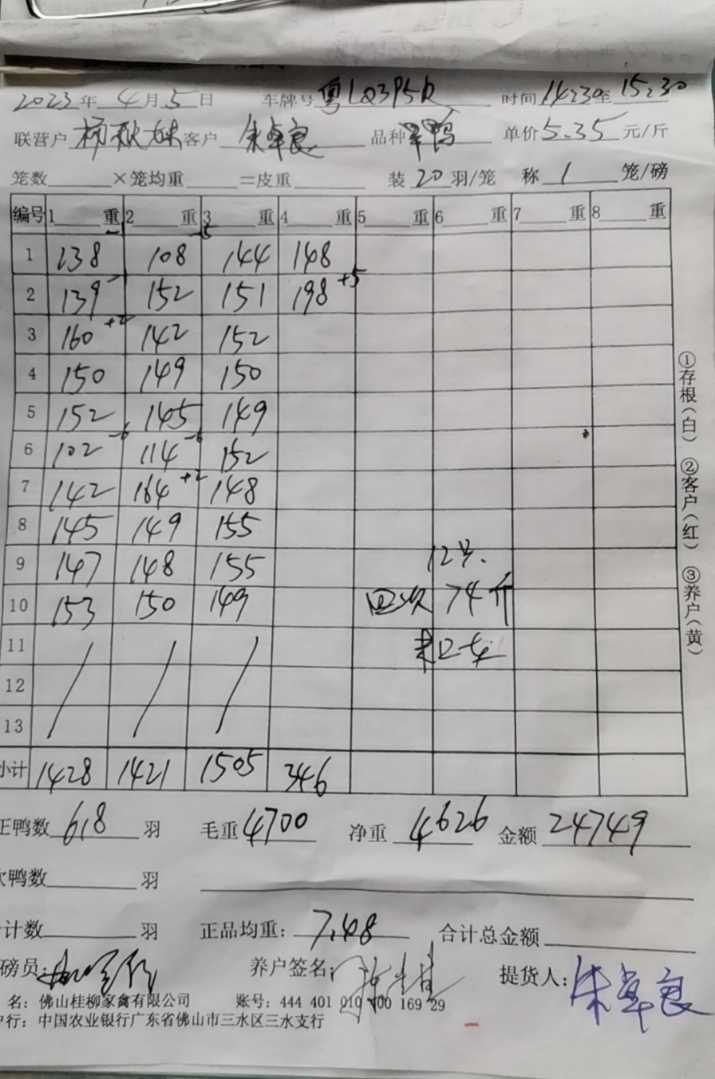 2023年 4月 5日 车牌号 粤LQ3P5R 时间 14:30至 15:30
联营户 客户 朱卓良 品种 单价 5.35 元/斤
笼数 ×笼均重 =皮重 装 20 羽/笼 称 1 笼/磅
编号 1 重 2 重 3 重 4 重 5 重 6 重 7 重 8 重
1 138 108 144 148
2 139 -1 152 151 198 +5
3 160 +2 142 152
4 150 149 150
5 152 145 149
6 102 -6 114 -6 152
7 142 164 +2 148
8 145 149 155
9 147 148 155
10 153 150 149
11
12
13
12号.
四次 74斤
小计 1428 1421 1505 346
正鸭数 618 羽 毛重 4700 净重 4626 金额 24749
次鸭数 羽
合计数 羽 正品均重: 7.48 合计总金额
磅员: 养户签名: 提货人: 朱卓良
名: 佛山桂柳家禽有限公司 账号: 444 401 010 400 169 29
行: 中国农业银行广东省佛山市三水区三水支行
①存根(白) ②客户(红) ③养户(黄)